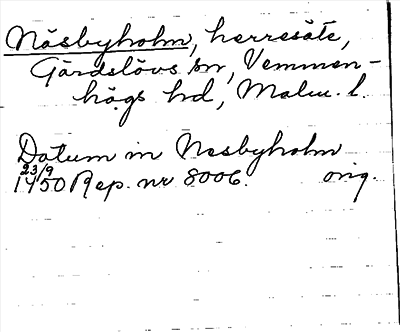 Näsbyholm, herresäte,
Gärdslövs sn, Vemmen-
högs hd, Malm. l.
Datum in Nesbyholm
23/9
1450 Rep. nr 8006. orig.